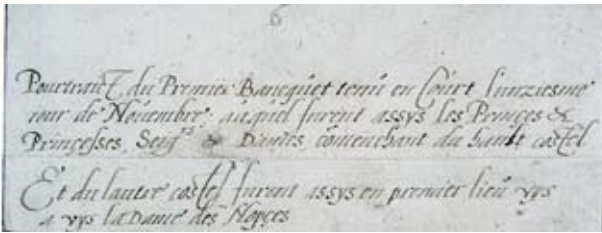 6
Pourtraict du Premier Bancquet tenu en Court l'unziesme
iour de Nouembre, auquel furent assys les Princes &
Princesses, Seigrs & Dames comenchant du hault costel
Et du laultre costel furent assys en premier lieu vys
a vys la Dame des Nopces